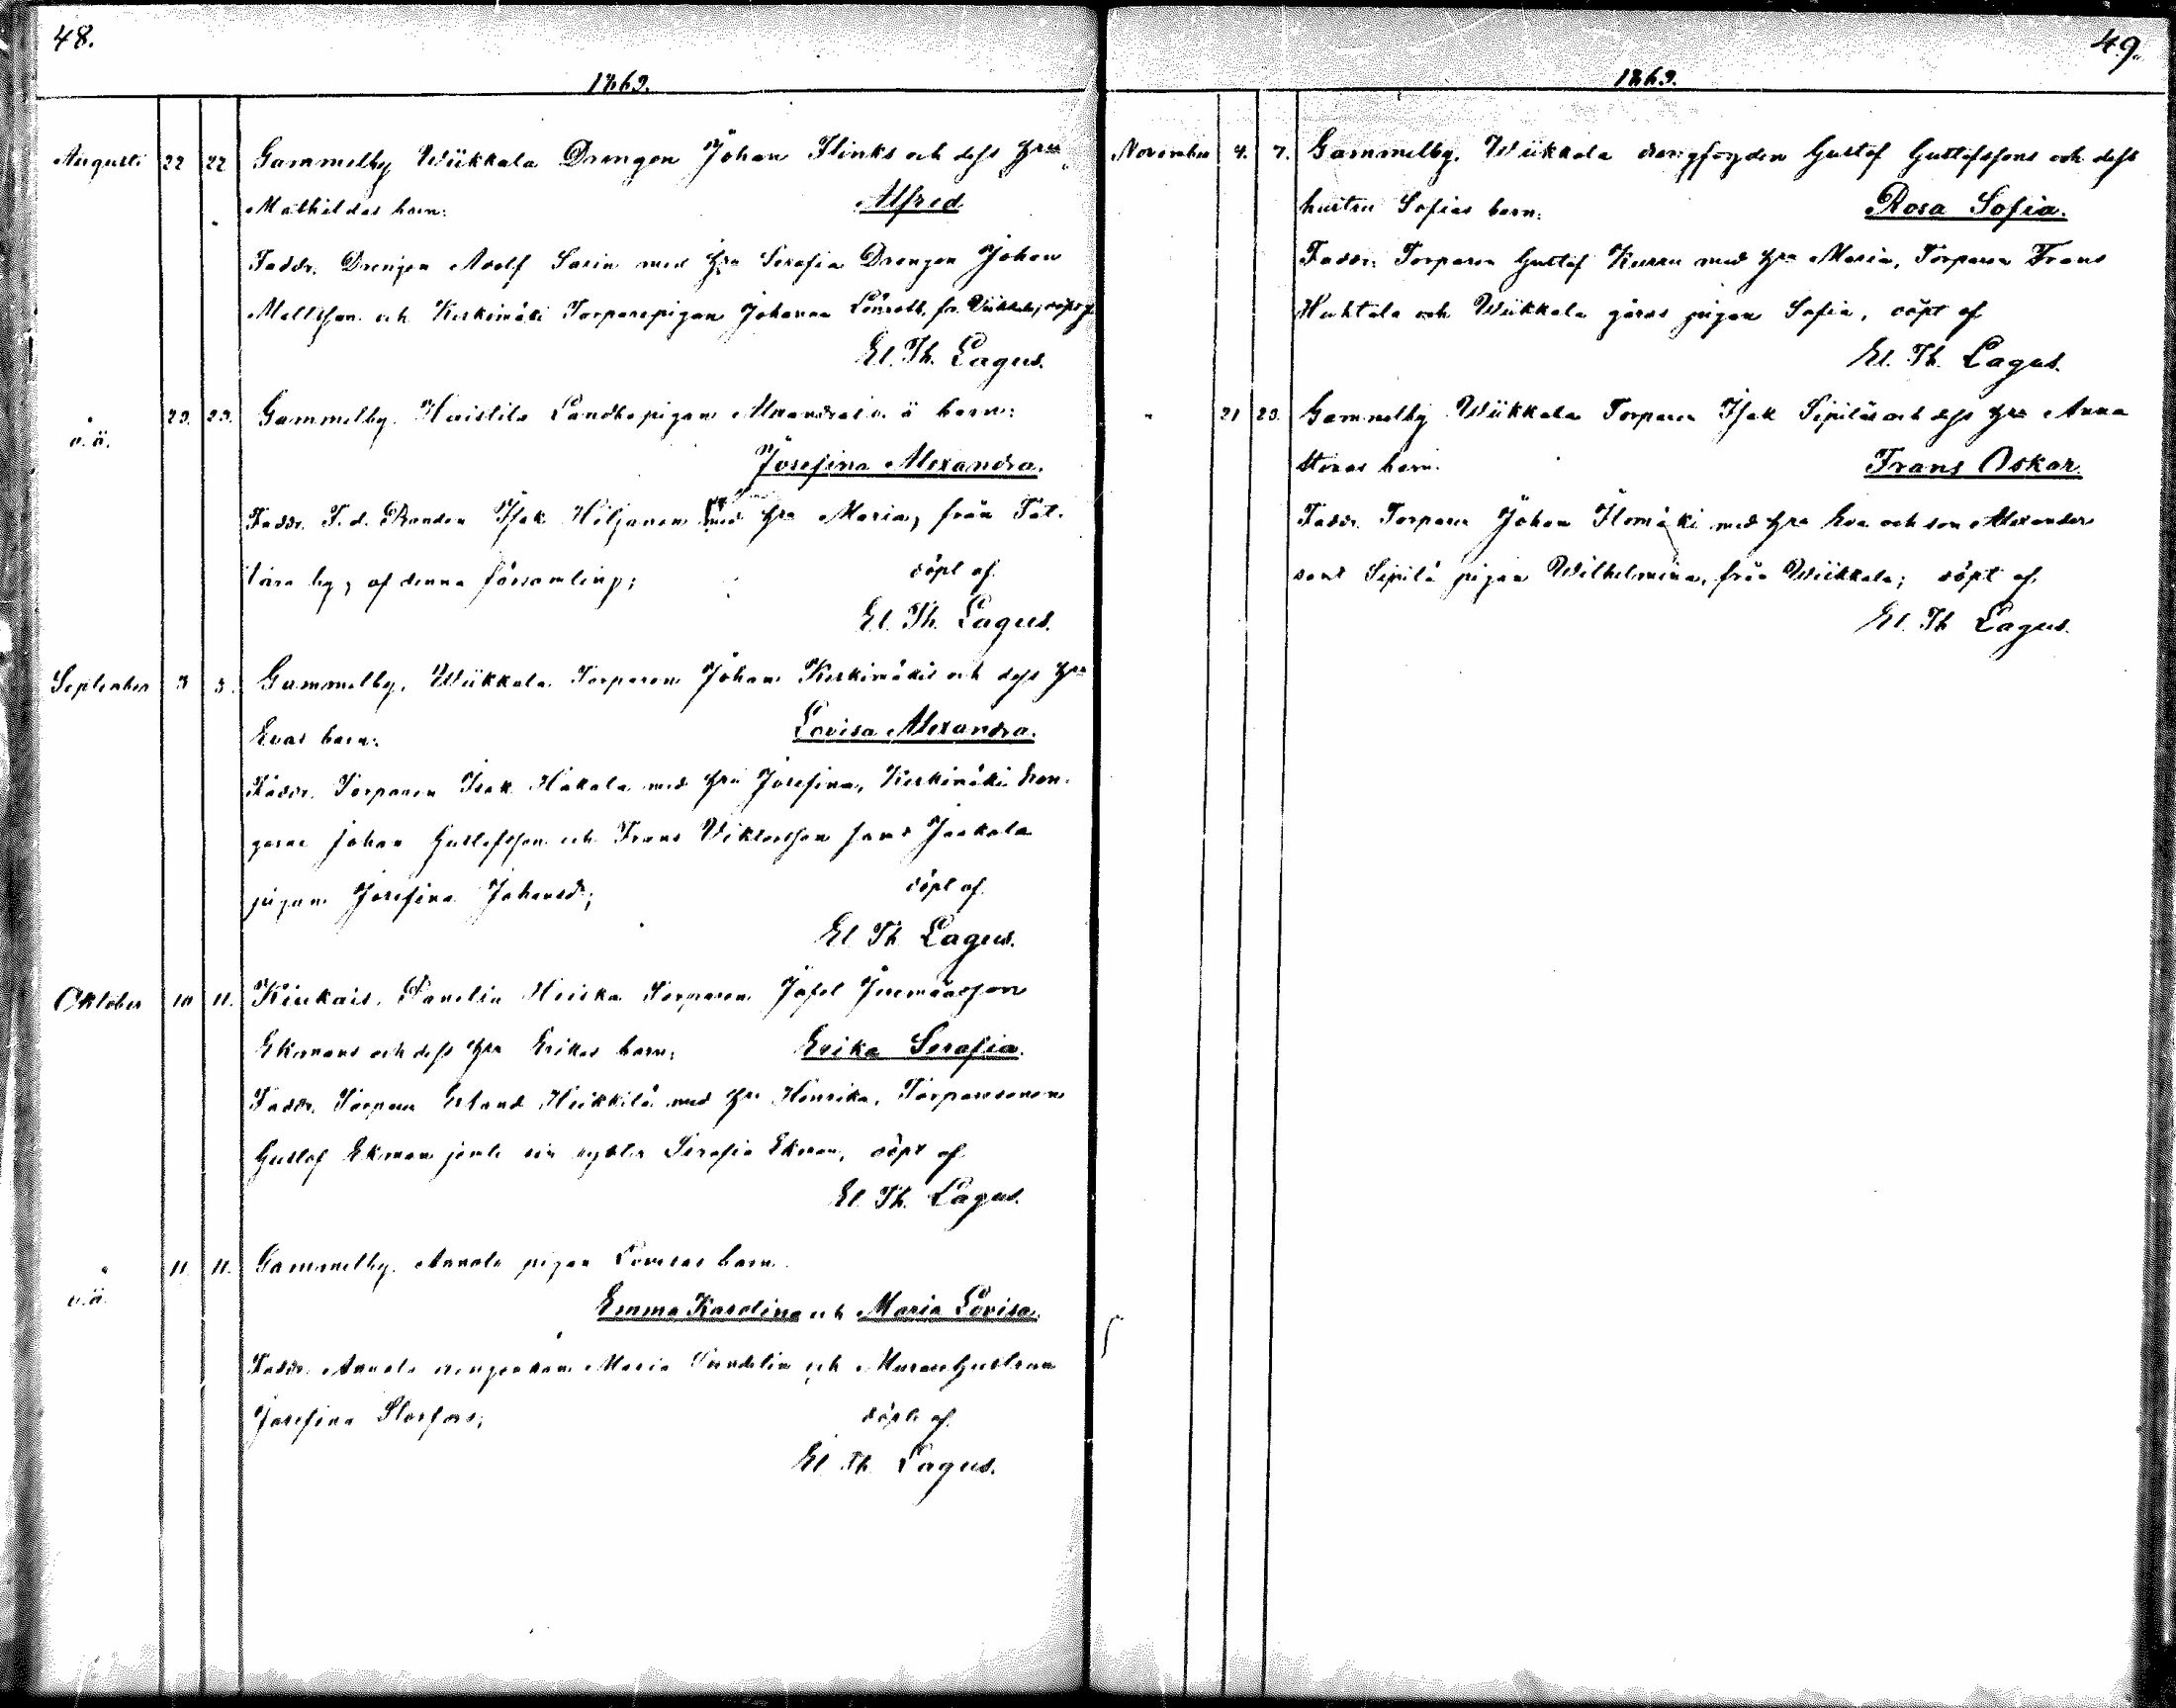 48.
1869.
Augusti 22 22 Gammelby Wiikkala Drengen Johan Flinks och dess hru
Mathildas barn: Alfred
Faddr. Drengen Adolf Sarin med hru Serafia Drengen Johan
Mattsson och Kerkimäki Torparepigan Johanna Lönroth, fr. Wiikkala; döpt af
El. Th. Lagus.
" 29. 29. Gammelby. Haistila Landbopigan Alexandras o. ä barn:
o. ä.
Josefina Alexandra.
Faddr. F. d. Bonden Isak Hiljanen med hru Maria, från Tat-
tara by, af denna församling; döpt af
El. Th. Lagus.
September 3 3. Gammelby, Wiikkala Torparen Johan Kerkimäkis och dess hru
Evas barn: Lovisa Alexandra.
Faddr. Torparen Isak Hakala med hru Josefina, Kerkimäki dren-
garne Johan Gustafsson och Frans Viktorsson samt Jaakola
pigan Josefina Johansdr; döpt af
El Th. Lagus.
Oktober 10 11. Kiukais, Panelia Torparen Josef Jeremiasson
Ekmans och dess hru Erikas barn; Erika Serafia.
Faddr. Torparen Erland Heikkilä med hru Henrika, Torparesonen
Gustaf Ekman jemte sin syster Serafia Ekman, döpt af
El. Th. Lagus.
" 11. 11. Gammelby. Annola pigan Lovisas barn
o. ä.
Emma Karolina och Maria Lovisa.
Faddr. Annola Maria Sundelin och hustrun
Josefina Storfors; döpte af
El. Th. Lagus.
49.
1869.
November 4. 7. Gammelby. Wiikkala drengfogden Gustaf Gustafssons och dess
hustru Sofias barn: Rosa Sofia.
Faddr: Torparen Gustaf Kurru med hru Maria, Torparen Frans
Huhtala och Wiikkala gårds pigan Sofia, döpt af
El. Th. Lagus.
" 21 23. Gammelby Wiikkala Torparen Isak Sipiläs och dess hru Anna
Stinas barn. Frans Oskar.
Faddr. Torparen Johan Ilomäki med hru Eva och son Alexander
samt Sipilä pigan Wilhelmina, från Wiikkala; döpt af.
El. Th Lagus.